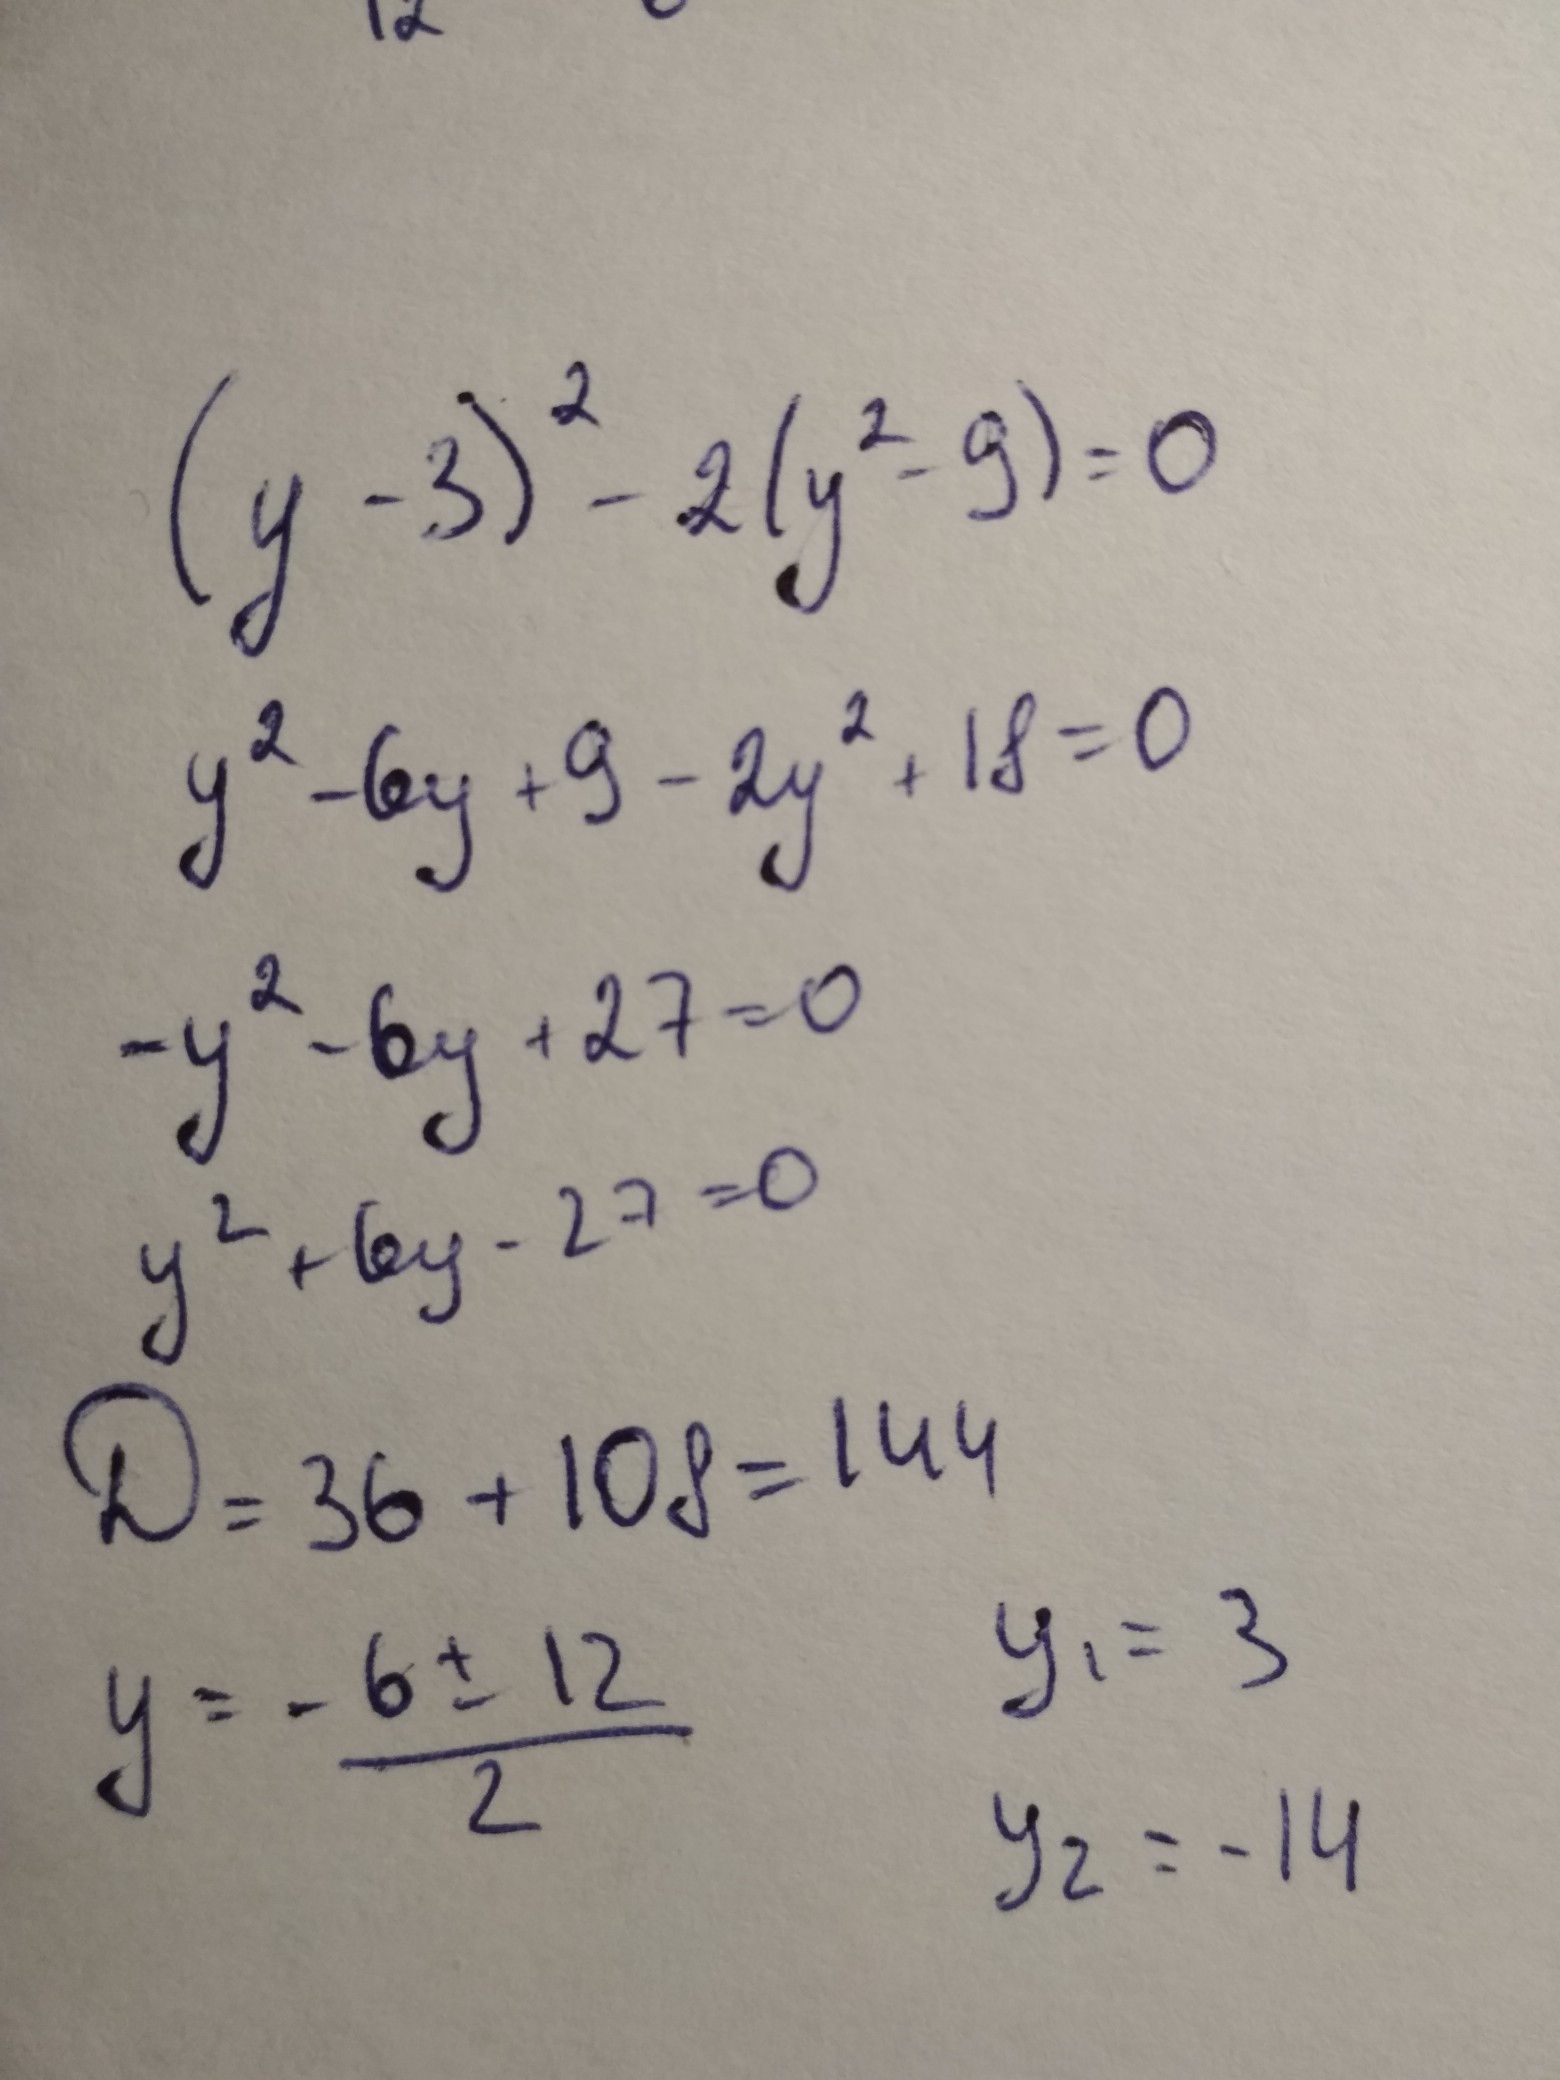 12
(y - 3)² - 2(y² - 9) = 0
y² - 6y + 9 - 2y² + 18 = 0
-y² - 6y + 27 = 0
y² + 6y - 27 = 0
D = 36 + 108 = 144
y = -6 ± 12 / 2
y₁ = 3
y₂ = -14